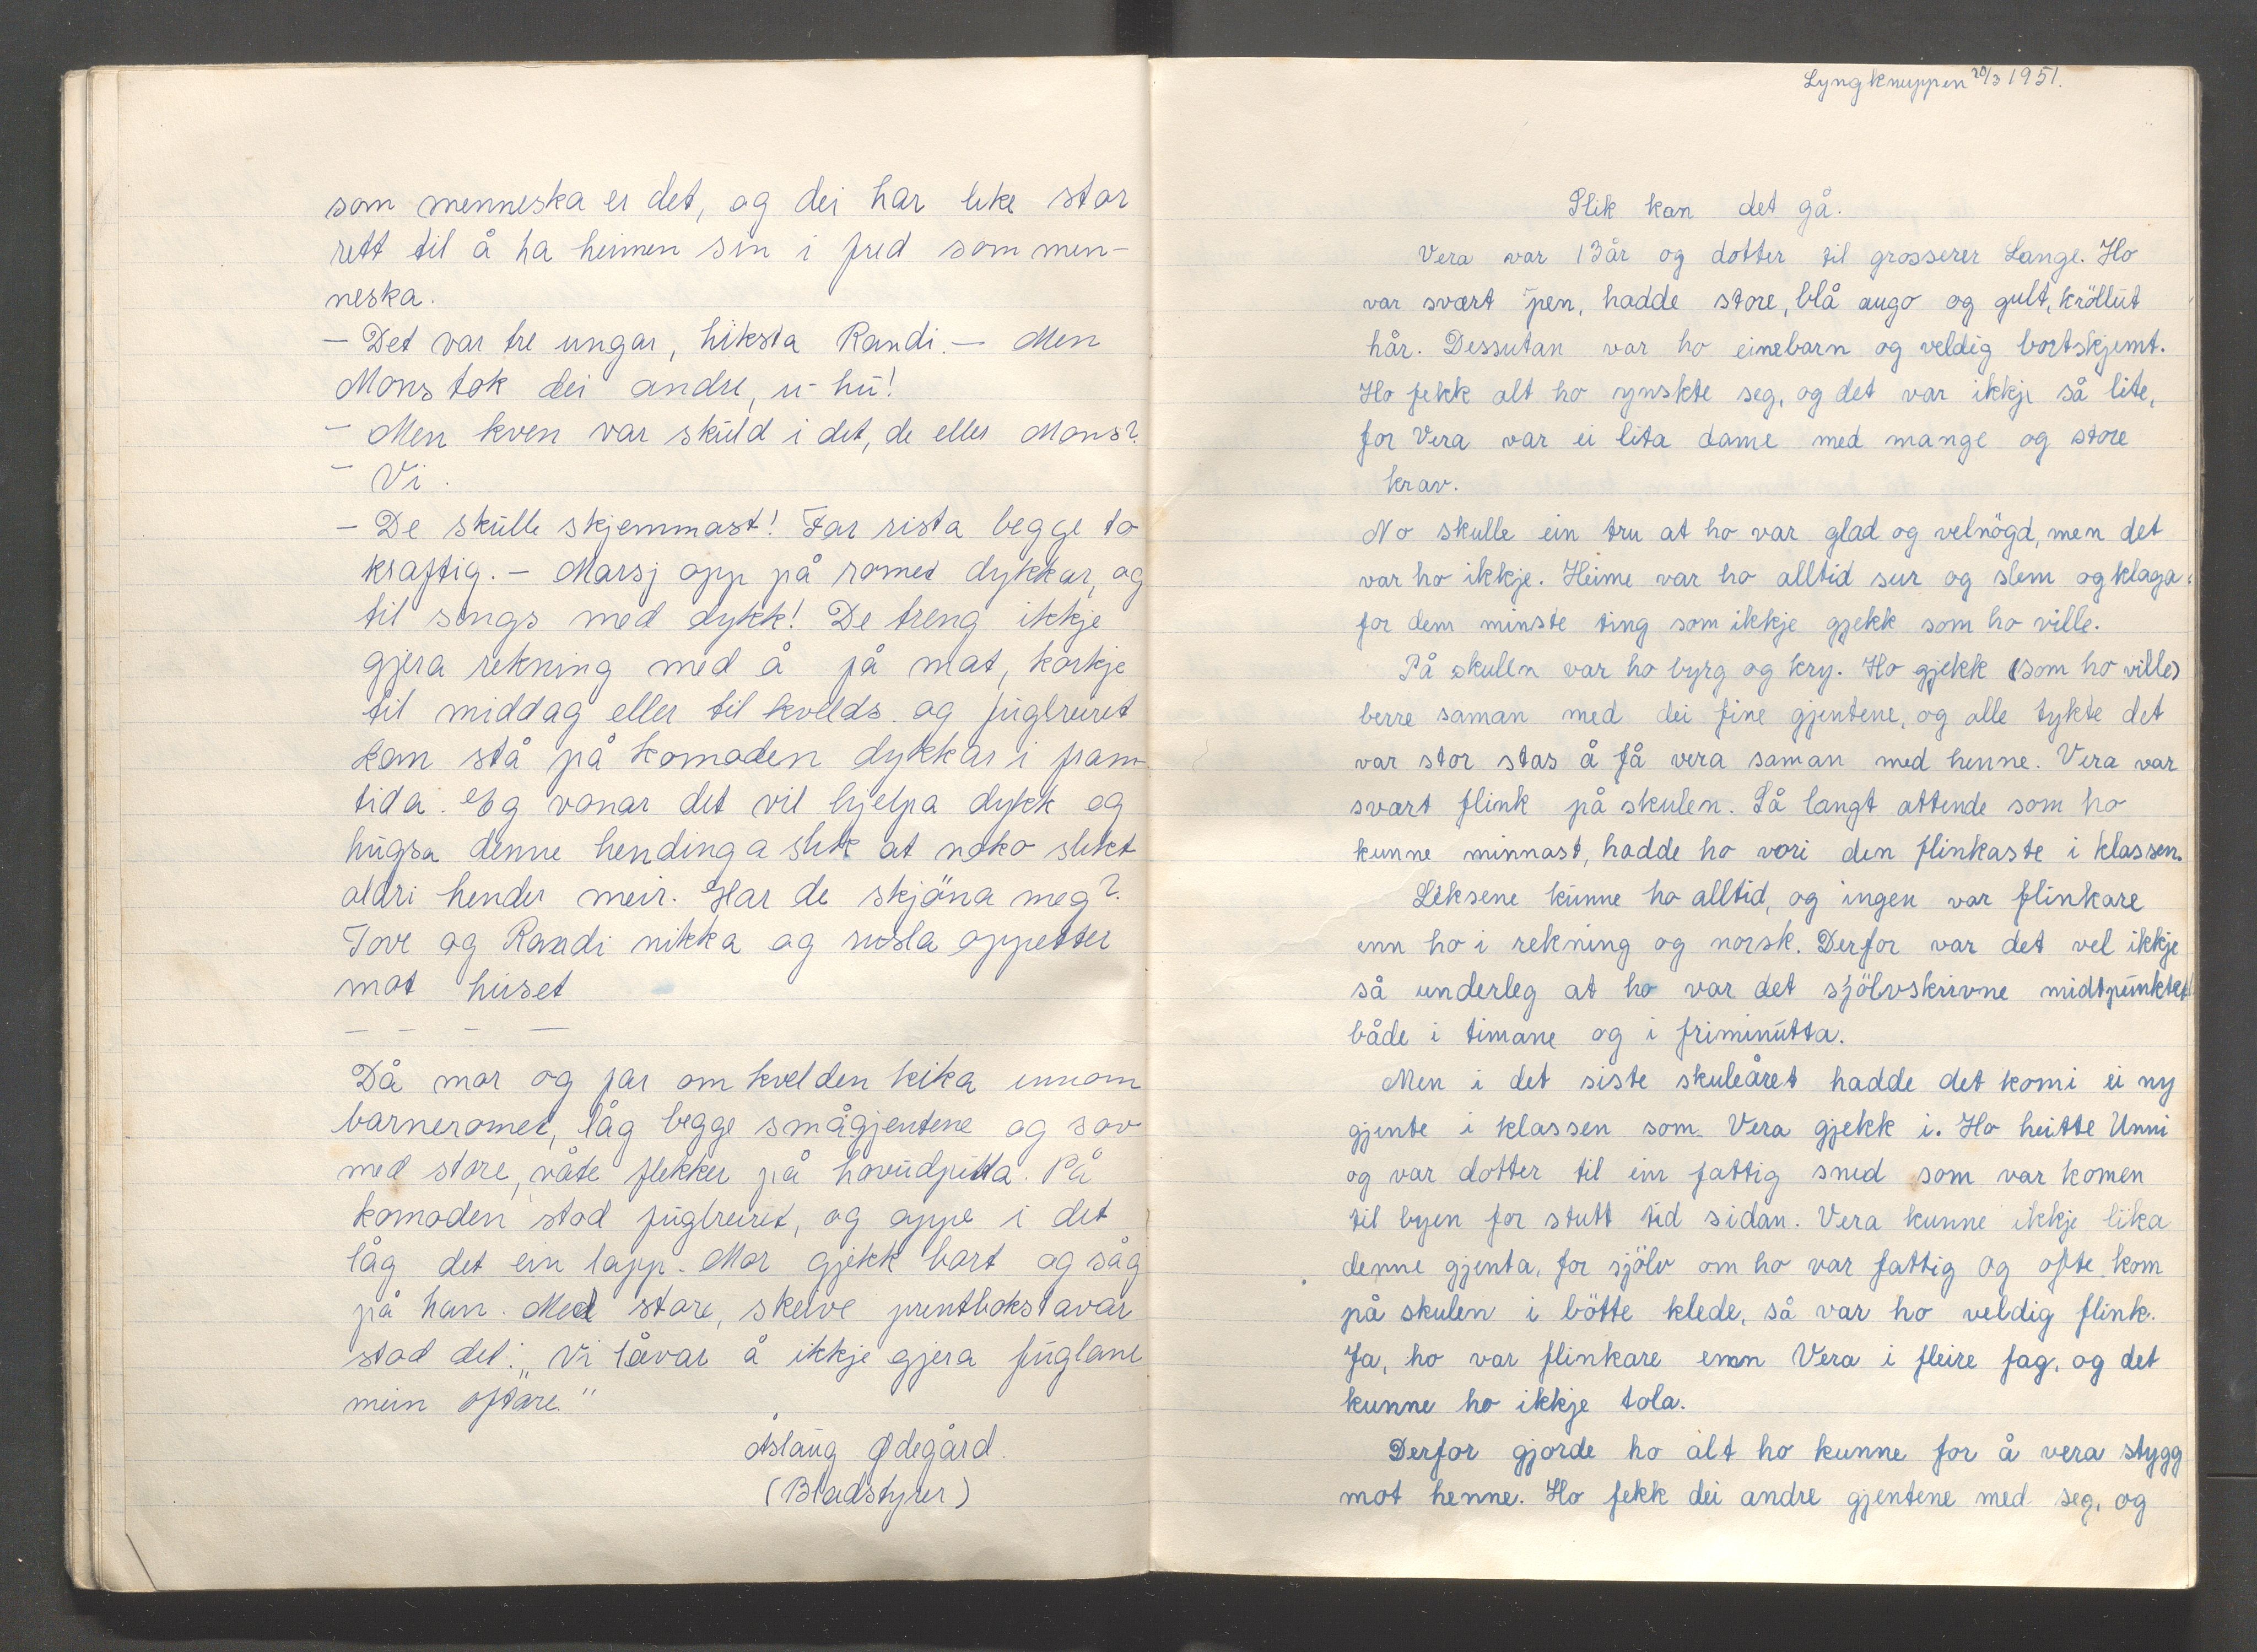 som menneska er det, og dei har like stor
rett til å ha heimen sin i fred som men-
neska.
- Det var tre ungar, hiksta Randi. - Men
Mons tok dei andre, u-hu!
- Men kven var skuld i det, de eller Mons?
- Vi.
- De skulle skjemmast! Far rista begge to
kraftig. - Marsj opp på romet dykkar, og
til sengs med dykk! De treng ikkje
gjera rekning med å få mat, korkje
til middag eller til kvelds. og fuglreiret
kan stå på komoden dykkar i fram-
tida. Eg vonar det vil hjelpa dykk og
hugsa denne hendinga slik at noko slikt
aldri hender meir. Har de skjöna meg?
Tove og Randi nikka og rusla oppetter
mot huset
- - - -
Då mor og far om kvelden kika innom
barneromet, låg begge smågjentene og sov
med store, våte flekker på hovudputa. På
komoden stod fuglreiret, og oppe i det
låg det ein lapp. Mor gjekk bort og såg
på han. Med store, skeive prentbokstavar
stod det: „Vi låvar å ikkje gjera fuglane
mein oftare."
Åslaug Ødegård.
(Bladstyrer)
Lyngknuppen 20/3 1951.
Slik kan det gå.
Vera var 13 år og dotter til grosserer Lange. Ho
var svært pen, hadde store, blå augo og gult, kröllut
hår. Dessutan var ho einebarn og veldig bortskjemt.
Ho fekk alt ho ynskte seg, og det var ikkje så lite,
for Vera var ei lita dame med mange og store
krav.
No skulle ein tru at ho var glad og velnögd, men det
var ho ikkje. Heime var ho alltid sur og slem og klaga
for dem minste ting som ikkje gjekk som ho ville.
På skulen var ho byrg og kry. Ho gjekk (som ho ville)
berre saman med dei fine gjentene, og alle tykte det
var stor stas å få vera saman med henne. Vera var
svært flink på skulen. Så langt attende som ho
kunne minnast, hadde ho vori den flinkaste i klassen.
Leksene kunne ho alltid, og ingen var flinkare
enn ho i rekning og norsk. Derfor var det vel ikkje
så underleg at ho var det sjölvskrivne midtpunktet
både i timane og i friminutta.
Men i det siste skuleåret hadde det komi ei ny
gjente i klassen som Vera gjekk i. Ho heitte Unni
og var dotter til ein fattig smed som var komen
til byen for stutt tid sidan. Vera kunne ikkje lika
denne gjenta, for sjölv om ho var fattig og ofte kom
på skulen i bötte klede, så var ho veldig flink.
Ja, ho var flinkare enn Vera i fleire fag, og det
kunne ho ikkje tola.
Derfor gjorde ho alt ho kunne for å vera stygg
mot henne. Ho fekk dei andre gjentene med seg, og